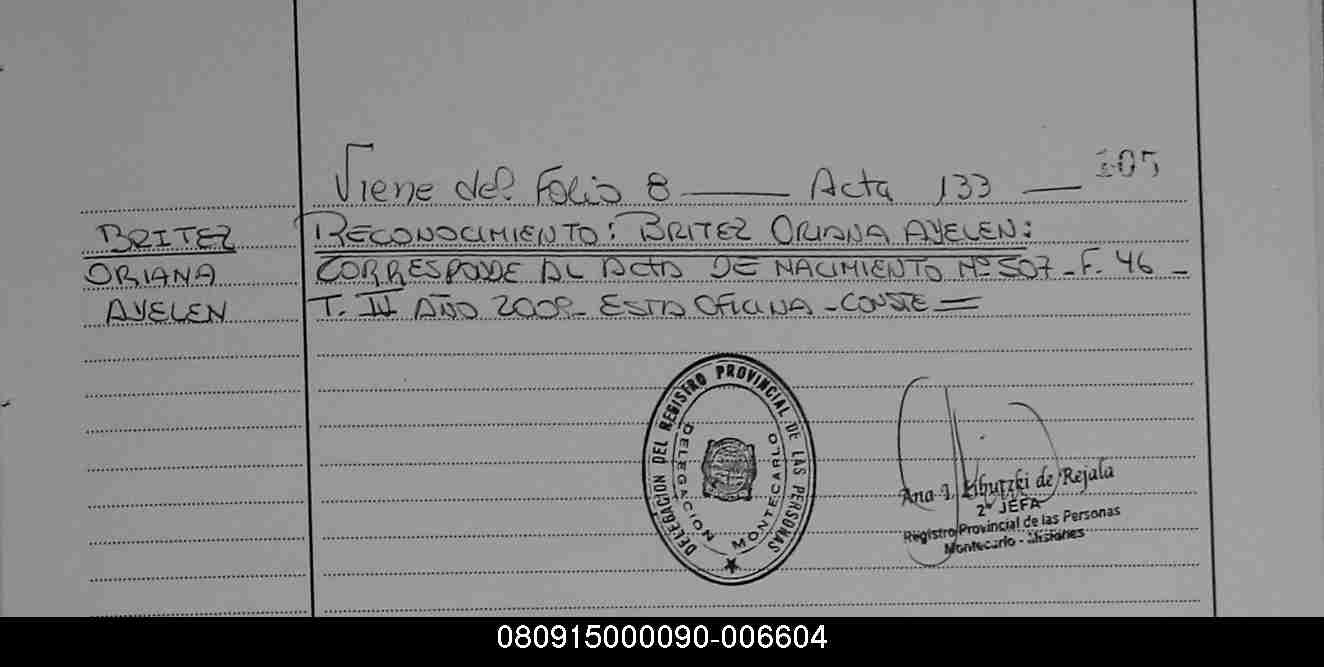 205
Viene del Folio 8 — Acta 133 —
BRITEZ
ORIANA
AYELEN
RECONOCIMIENTO: BRITEZ ORIANA AYELEN:
CORRESPONDE AL ACTA DE NACIMIENTO Nº 507 - F. 46 -
T. IV AÑO 2009 - ESTA OFICINA - CONSTE =
DELEGACION DEL REGISTRO PROVINCIAL DE LAS PERSONAS
DELEGACION MONTECARLO
Ana I. de Rejala
2º JEFA
Registro Provincial de las Personas
Montecarlo - Misiones
080915000090-006604